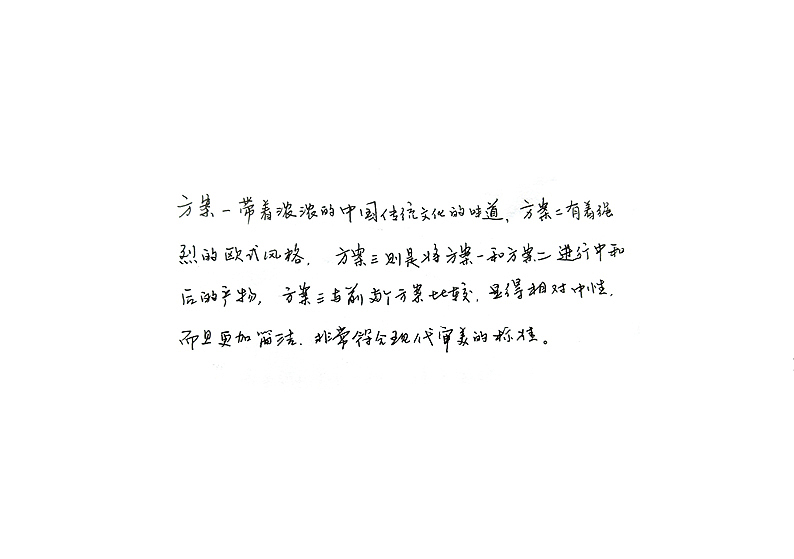 方案一带着浓浓的中国传统文化的味道，方案二有着强
烈的欧式风格，方案三则是将方案一和方案二进行中和
后的产物，方案三与前两个方案比较，显得相对中性，
而且更加简洁，非常符合现代审美的标准。